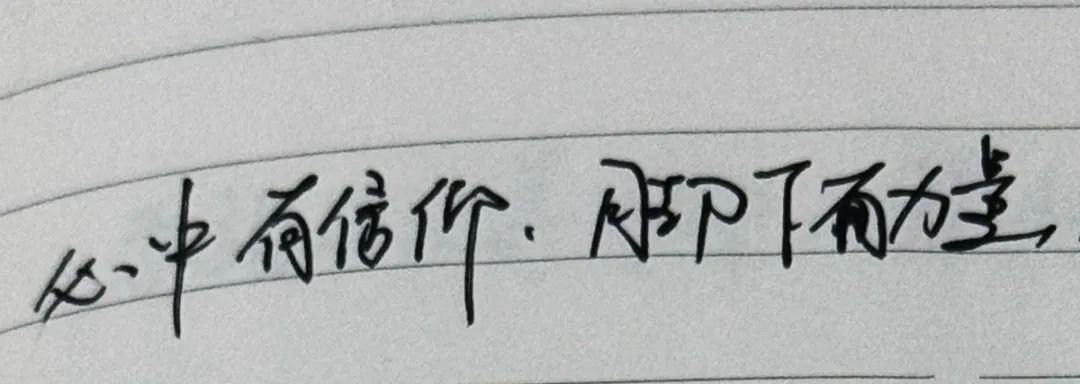 心中有信仰.脚下有力量,